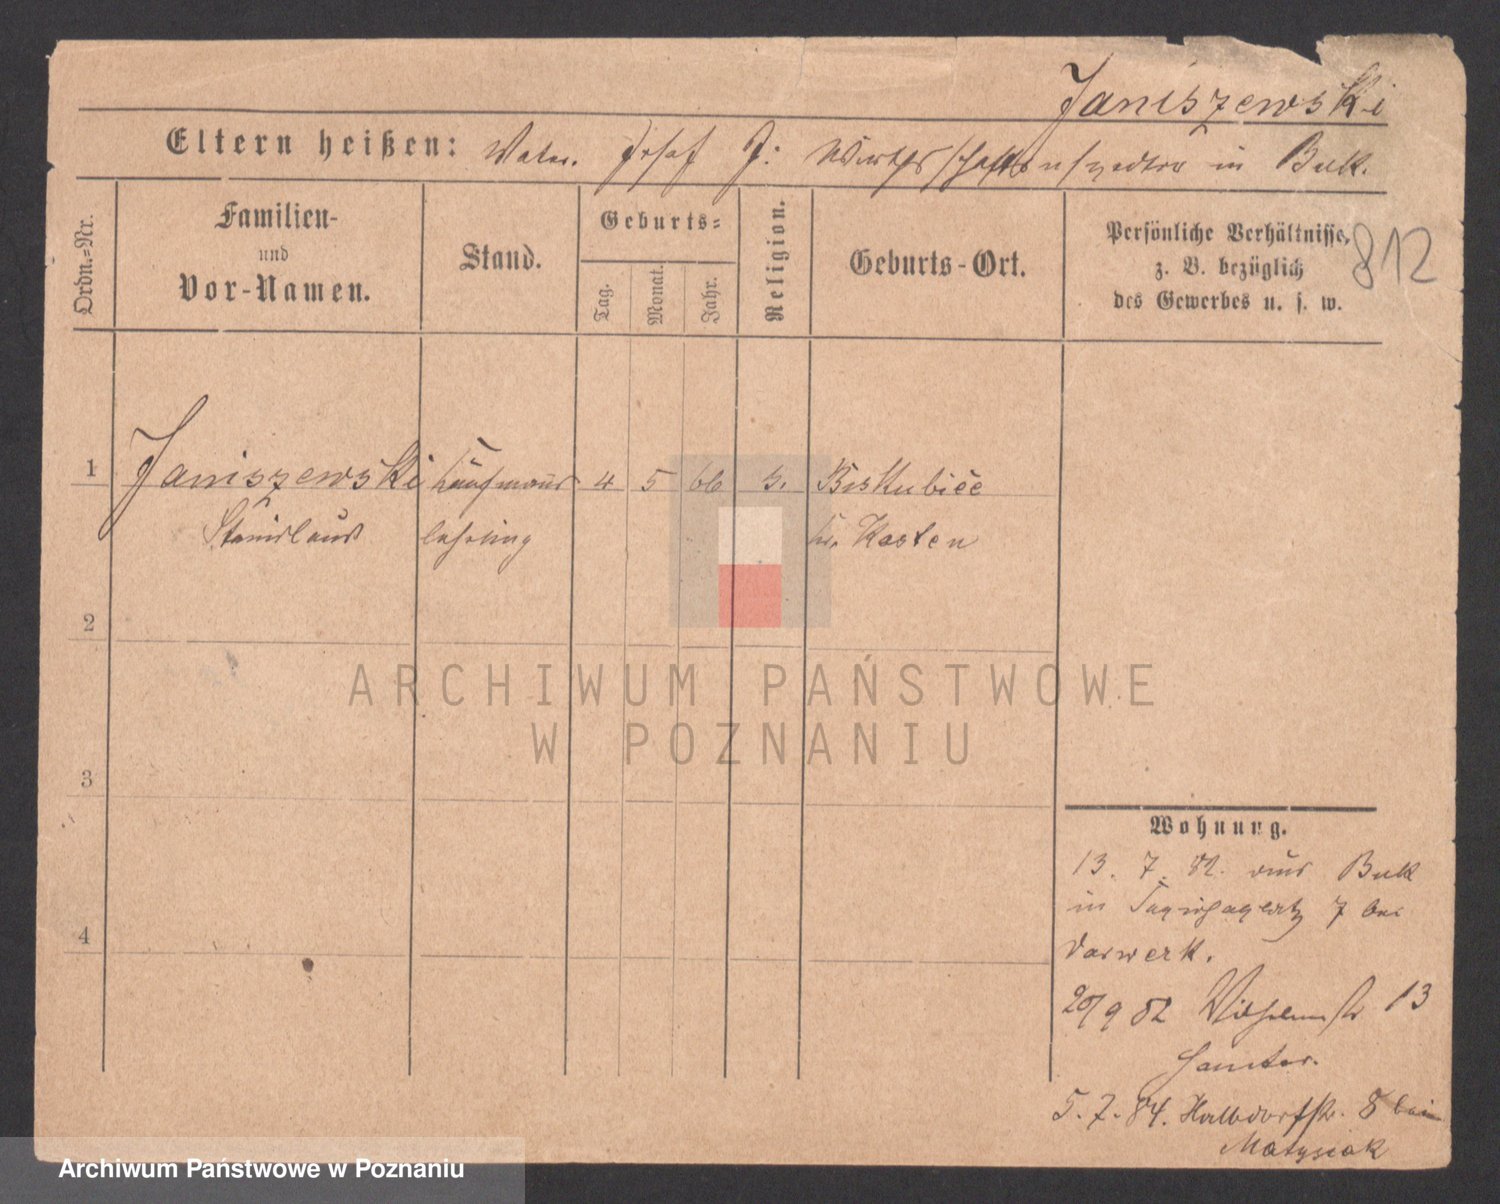 Janiszewski
Eltern heißen: Vater. Josef J: Wirthschaftsinspector in Buk.
Ordn.=Nr.
Familien-
und
Vor-Namen.
Stand.
Geburts=
Tag.
Monat.
Jahr.
Religion.
Geburts-Ort.
Persönliche Verhältnisse,
z. B. bezüglich
des Gewerbes u. s. w.
812
1 Janiszewski Kaufmanns 4 5 66 Biskubice
Stanislaus lehrling Kr. Kosten
2
3
4
Wohnung.
13. 7. 82. aus Buk
in 7 bei
Vorwerk.
20/9 82 Wilhelmstr 13
5.7.84. Halbdorfstr. 8 bei
Matysiak
ARCHIWUM PAŃSTWOWE
W POZNANIU
Archiwum Państwowe w Poznaniu